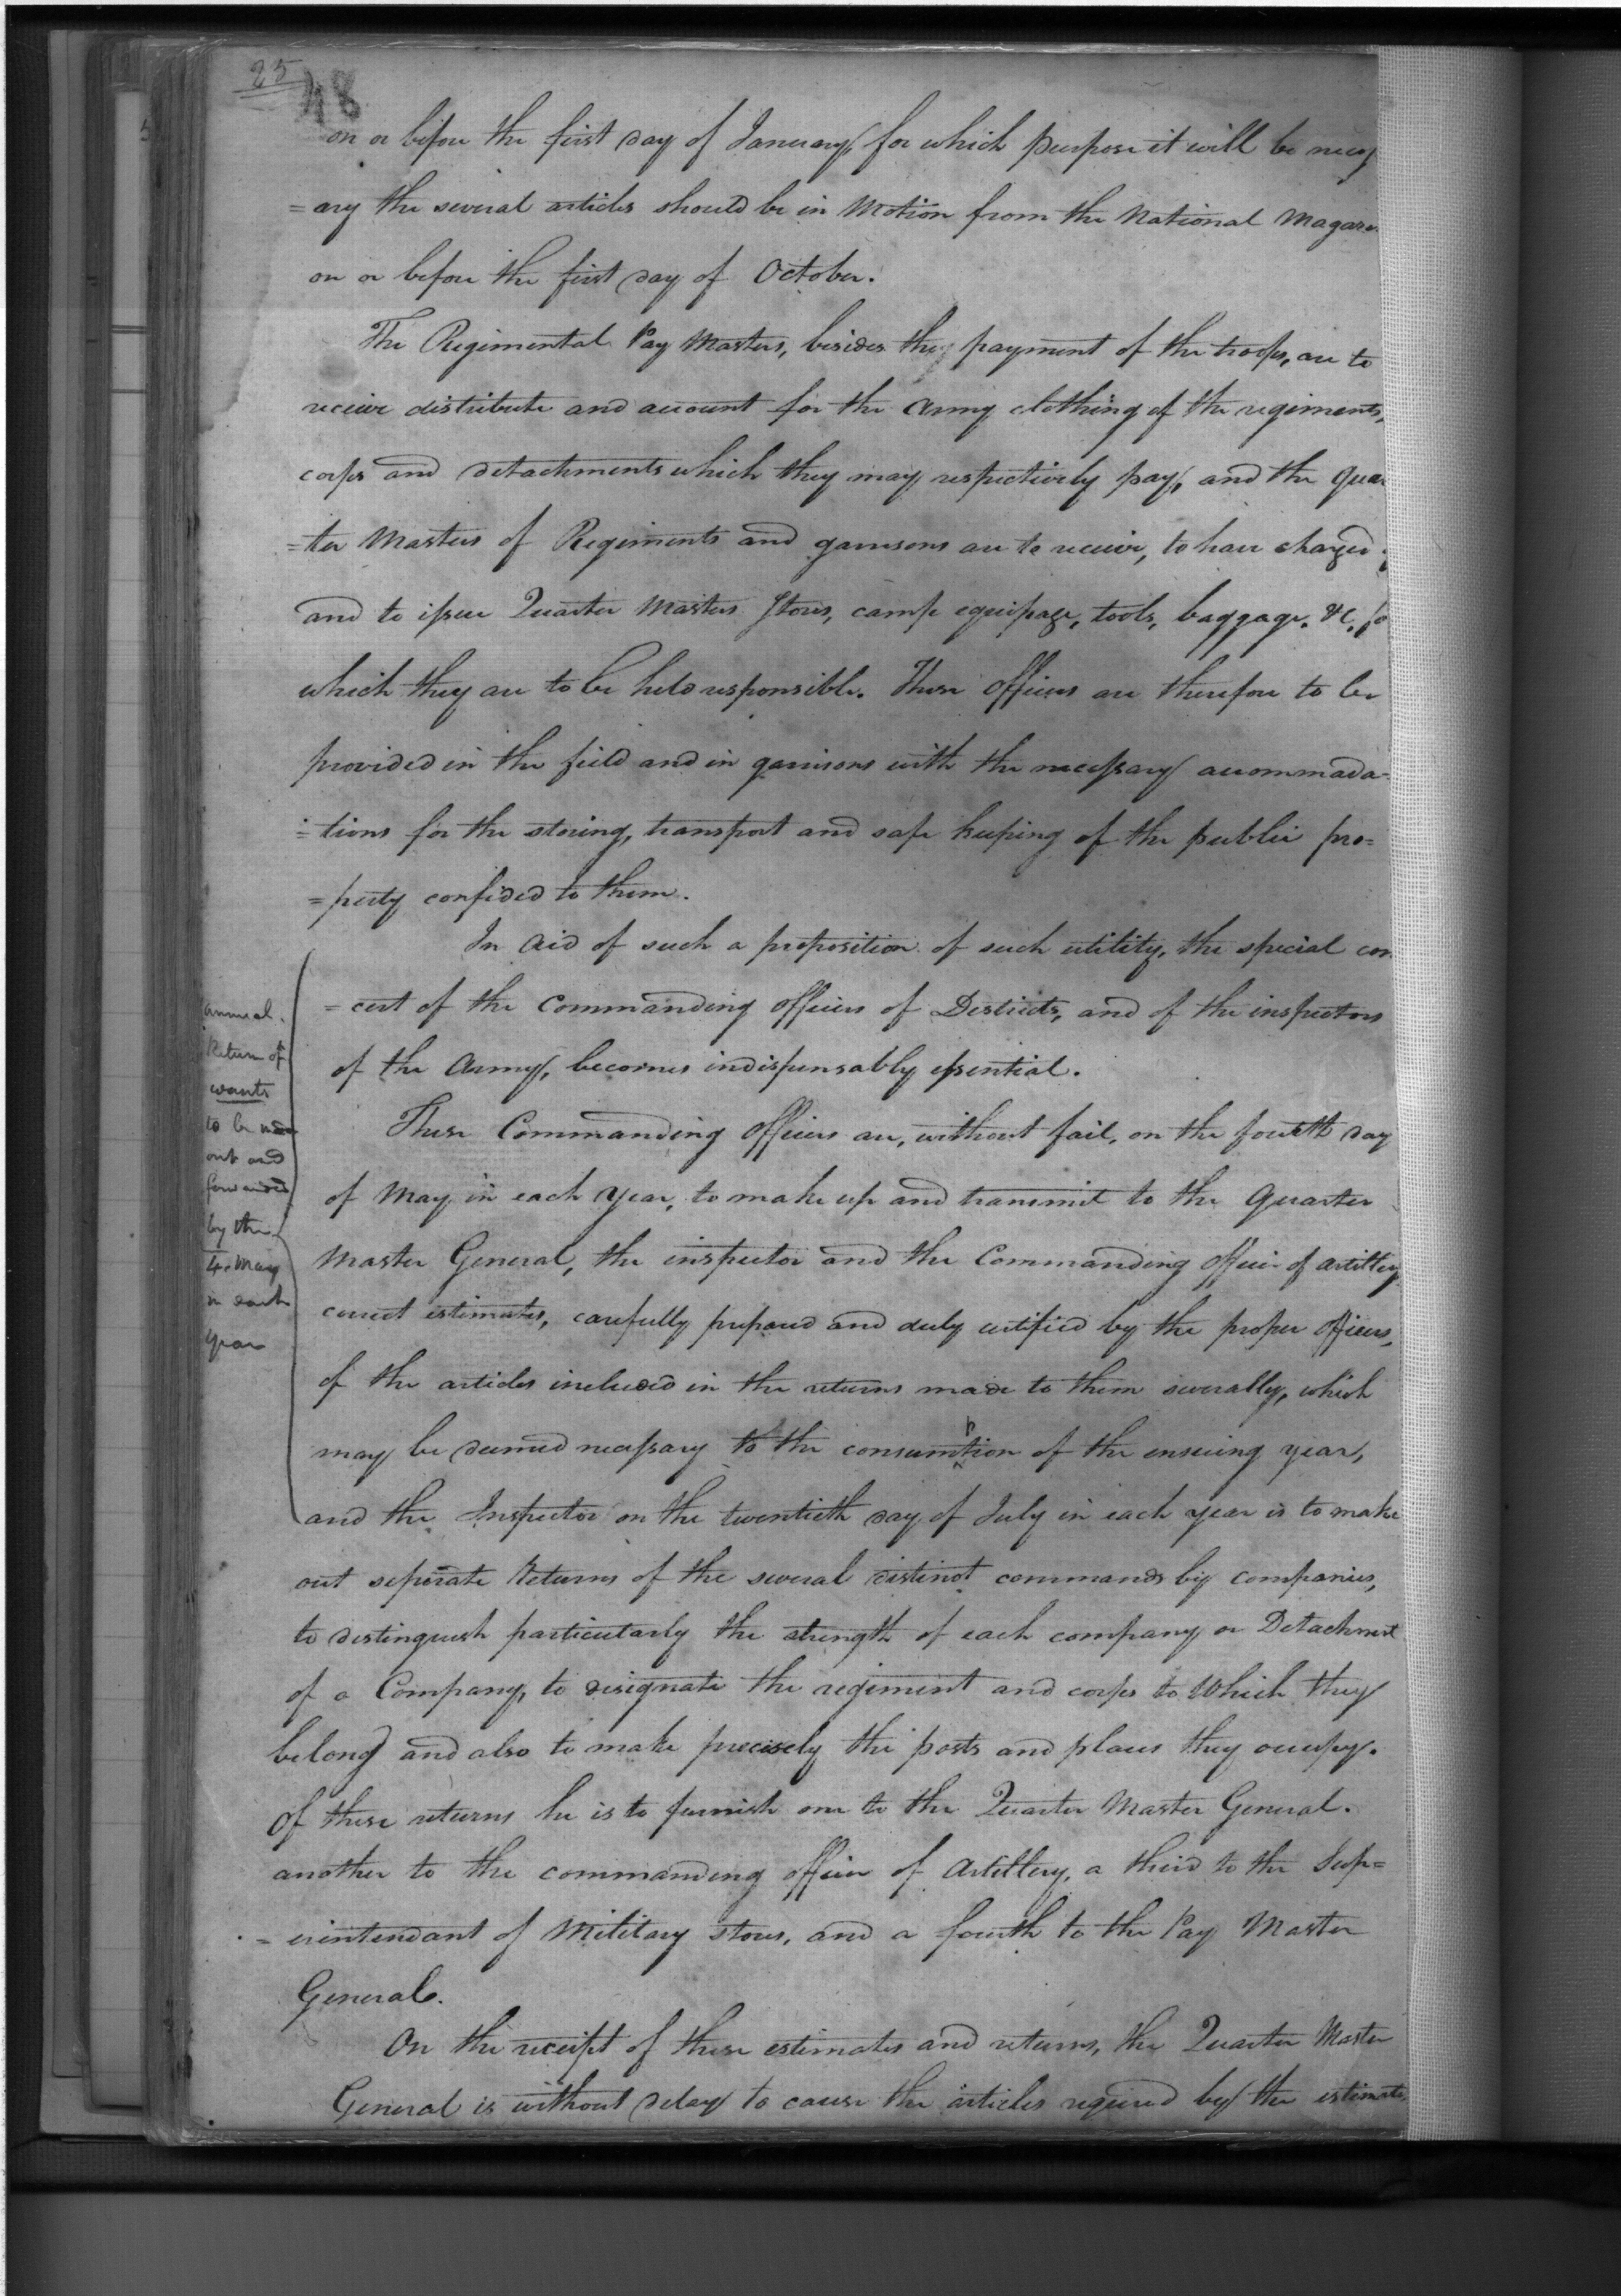 25
48
on or before the first day of January, for which purpose it will be necess
=ary the several articles should be in Motion from the National Magazi
on or before the first day of October.
The Regimental Pay Masters, besides the payment of the troops, are to
receive distribute and account for the Army clothing of the regiments,
corps and detachments which they may respectively pay, and the Quar
=ter Masters of Regiments and garrisons are to receive, to have charged
and to issue Quarter Masters Stores, camp equipage, tools, baggage. &c, fo
which they are to be held responsible. These Officers are therefore to be
provided in the field and in garrisons with the necessary accommada-
=tions for the storing, transport and safe keeping of the public pro=
=perty confided to them.
In Aid of such a proposition of such utility, the special con
=cert of the Commanding Officers of Districts, and of the inspectors
of the Army, becomes indispensably essential.
annual
Return of
wants
to be made
out and
forwarded
by the
4. May
in each
year
These Commanding Officers are, without fail, on the fourth day
of May in each year, to make up and transmit to the Quarter
Master General, the inspector and the Commanding Officer of Artillery
correct estimates, carefully prepared and duly certified by the proper Officers,
of the articles included in the returns made to them severally, which
may be deemed necessary to the consumption of the ensuing year,
and the Inspector on the twentieth day of July in each year is to make
out seperate Returns of the several distinct commands by companies,
to distinguish particularly the strength of each company or Detachment
of a Company, to designate the regiment and corps to Which they
belong and also to make precisely the posts and places they occupy.
Of these returns he is to furnish one to the Quarter Master General.
another to the commanding officer of Artillery, a third to the Sup=
=erintendant of Military Stores, and a fourth to the Pay Master
General.
On the receipt of these estimates and returns, the Quarter Master
General is without delay to cause the articles required by the estimates